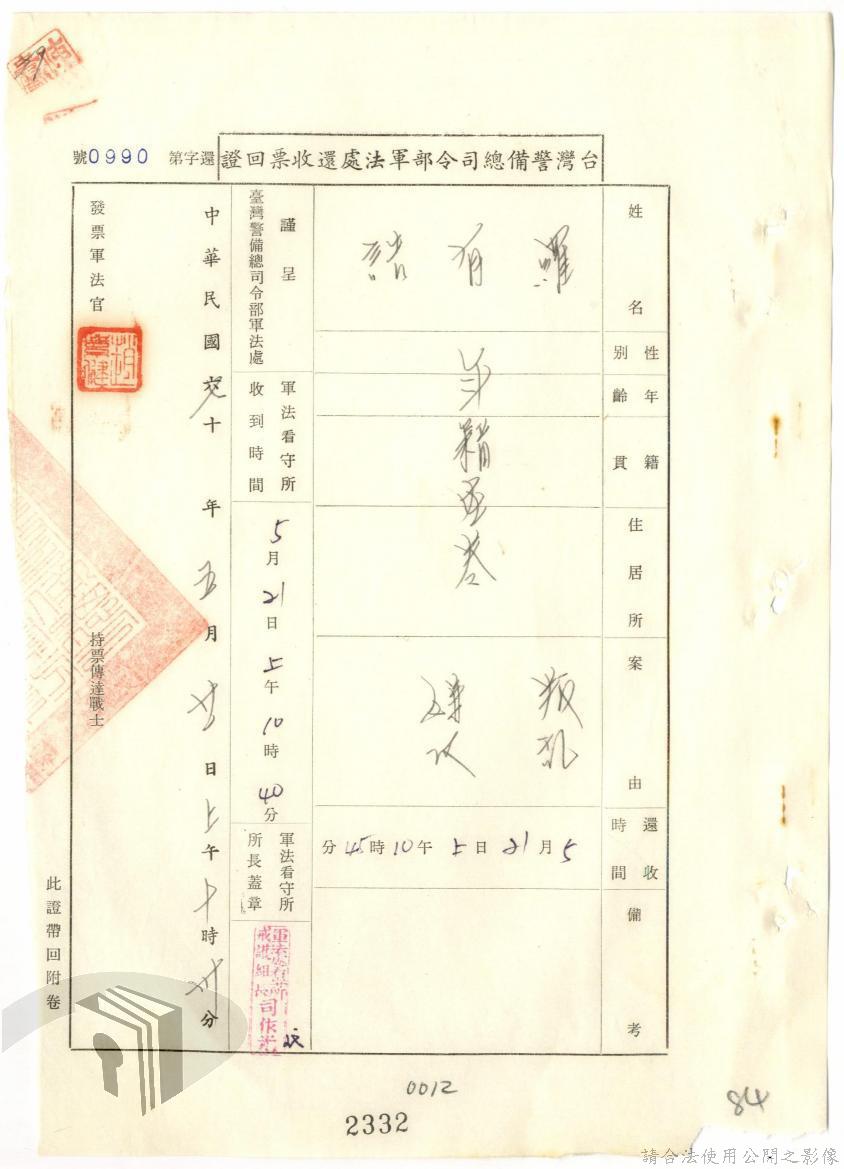 台灣警備總司令部軍法處還收票回證
還字第0990號
姓名
羅有諾
性別
年齡
籍貫
住居所
年籍在卷
案由
叛亂
還收時間
5月21日上午10時45分
備考
謹呈
臺灣警備總司令部軍法處
軍法看守所
收到時間
5月21日上午10時40分
軍法看守所
所長蓋章
中華民國六十年五月廿日上午十時分
發票軍法官
持票傳達戰士
此證帶回附卷
0012
2332
84
請合法使用公開之影像